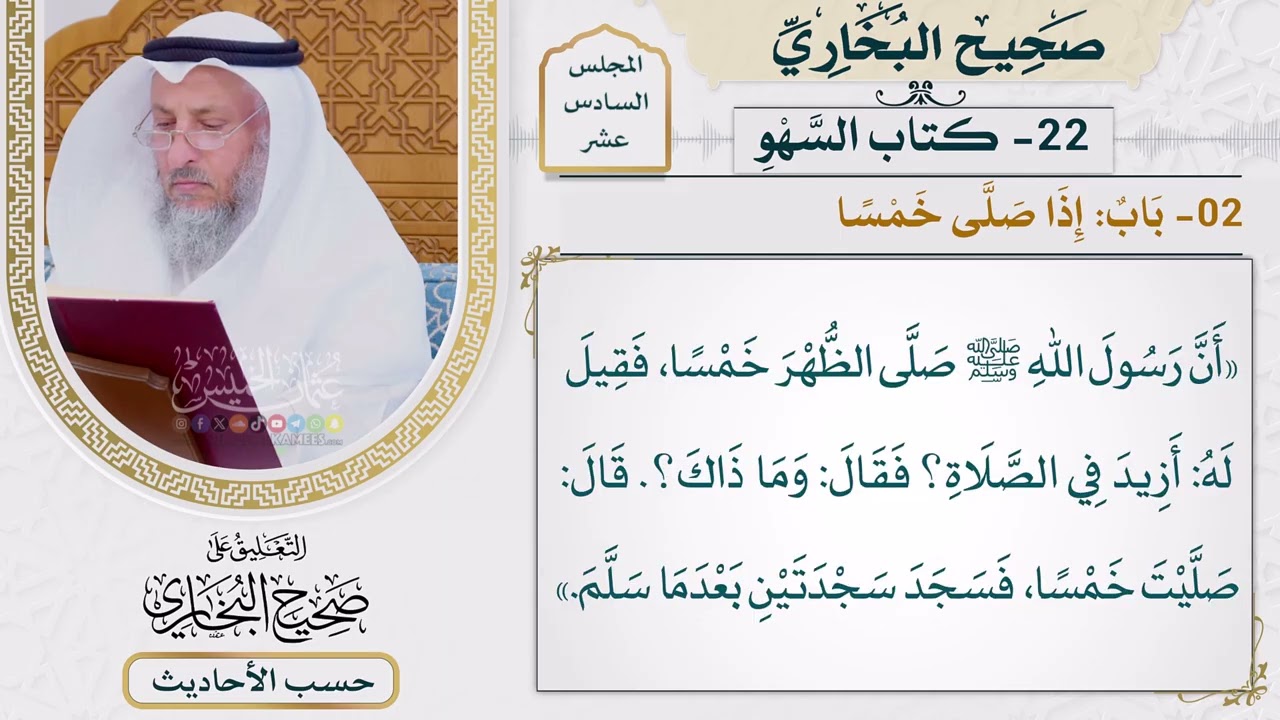 صَحِيح البُخَارِيِّ
المجلس
السادس
عشر
22- كتاب السَّهْوِ
02- بَابٌ: إِذَا صَلَّى خَمْسًا
«أَنَّ رَسُولَ اللهِ ﷺ صَلَّى الظُّهْرَ خَمْسًا، فَقِيلَ
لَهُ: أَزِيدَ فِي الصَّلَاةِ؟ فَقَالَ: وَمَا ذَاكَ؟. قَالَ:
صَلَّيْتَ خَمْسًا، فَسَجَدَ سَجْدَتَيْنِ بَعْدَمَا سَلَّمَ.»
عثمان الخميس
التَّعْلِيقُ عَلَى
صَحِيحِ البُخَارِي
حسب الأحاديث